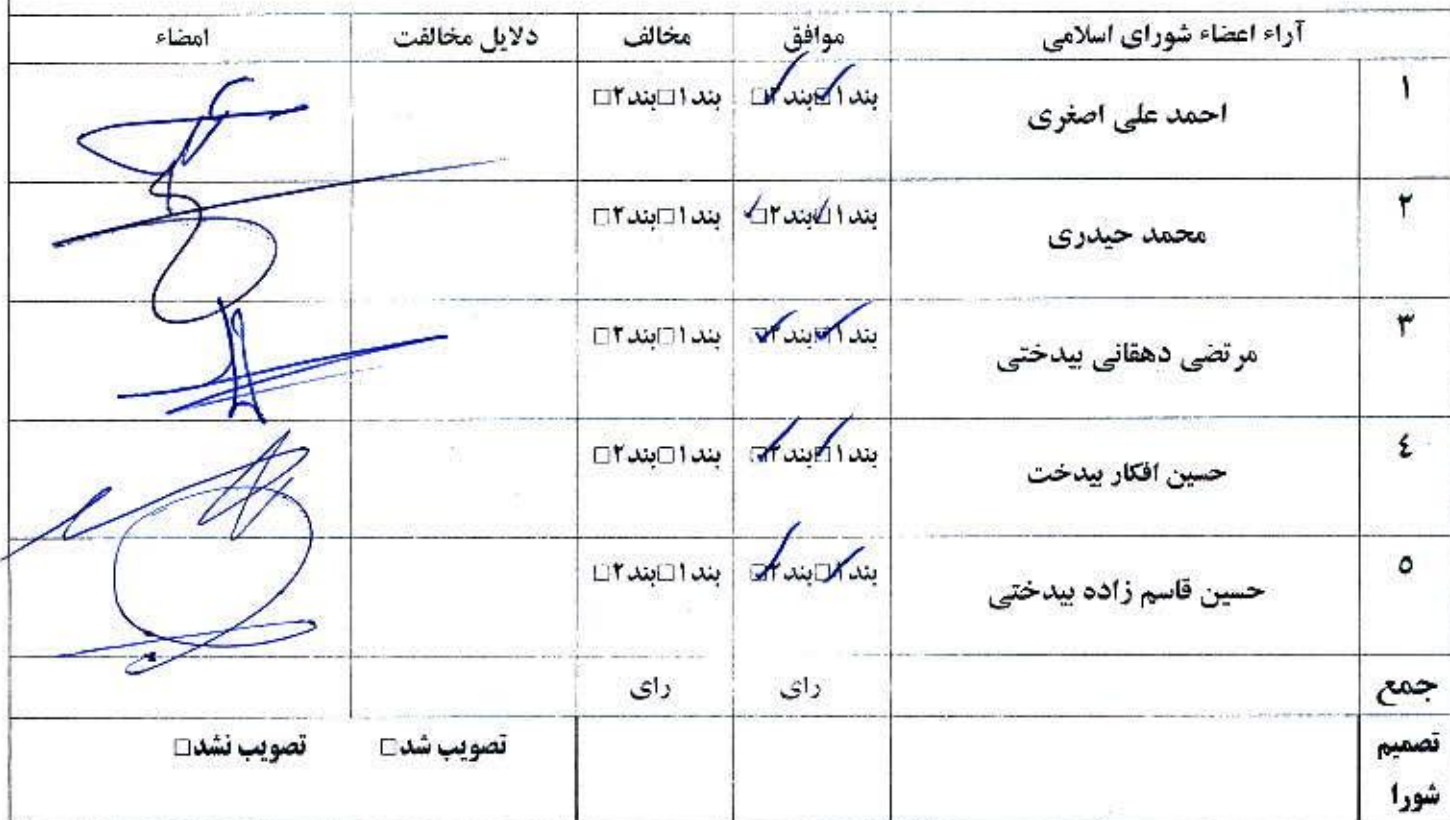 آراء اعضاء شورای اسلامی موافق مخالف دلایل مخالفت امضاء
۱ احمد علی اصغری بند ۱☑بند ۲☑ بند ۱□بند ۲□
۲ محمد حیدری بند ۱☑بند ۲☑ بند ۱□بند ۲□
۳ مرتضی دهقانی بیدختی بند ۱☑بند ۲☑ بند ۱□بند ۲□
٤ حسین افکار بیدخت بند ۱☑بند ۲☑ بند ۱□بند ۲□
٥ حسین قاسم زاده بیدختی بند ۱☑بند ۲☑ بند ۱□بند ۲□
جمع رای رای
تصمیم تصویب شد□ تصویب نشد□
شورا